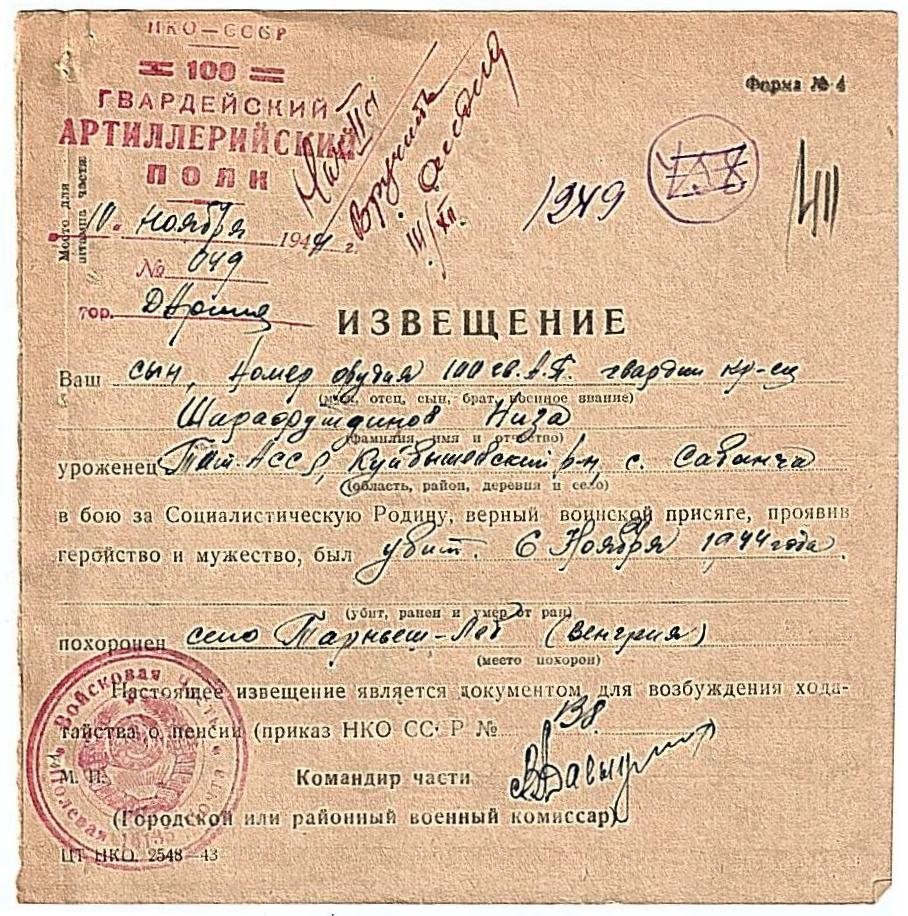 НКО—СССР
100
ГВАРДЕЙСКИЙ
АРТИЛЛЕРИЙСКИЙ
ПОЛК
Место для
штампа части
Форма № 4
Вручить
1249
10. ноября 1944 г.
№ 049
гор.
ИЗВЕЩЕНИЕ
Ваш сын, номер орудия 100 гв. А.П. гвардии кр-ец
(муж, отец, сын, брат, военное звание)
Шарафутдинов Низа
(фамилия, имя и отчество)
уроженец Тат. АССР, Куйбышевский р-н, с. Саванча
(область, район, деревня и село)
в бою за Социалистическую Родину, верный воинской присяге, проявив
геройство и мужество, был убит. 6 Ноября 1944 года.
(убит, ранен и умер от ран)
похоронен село (Венгрия)
(место похорон)
Настоящее извещение является документом для возбуждения хода-
тайства о пенсии (приказ НКО СССР № 138.
М. П.
Командир части
(Городской или районный военный комиссар)
Войсковая часть
Полевая почта
ЦТ НКО. 2548—43